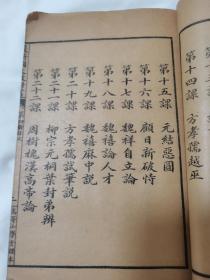 第十四課　方孝孺越巫
第十五課　元結惡圓
第十六課　顧日新破恃
第十七課　魏祥自立論
第十八課　魏禧論人才
第十九課　魏禧麻中說
第二十課　方孝孺試筆說
第二十一課　柳宗元桐葉封弟辨
第二十二課　周樹槐漢高帝論